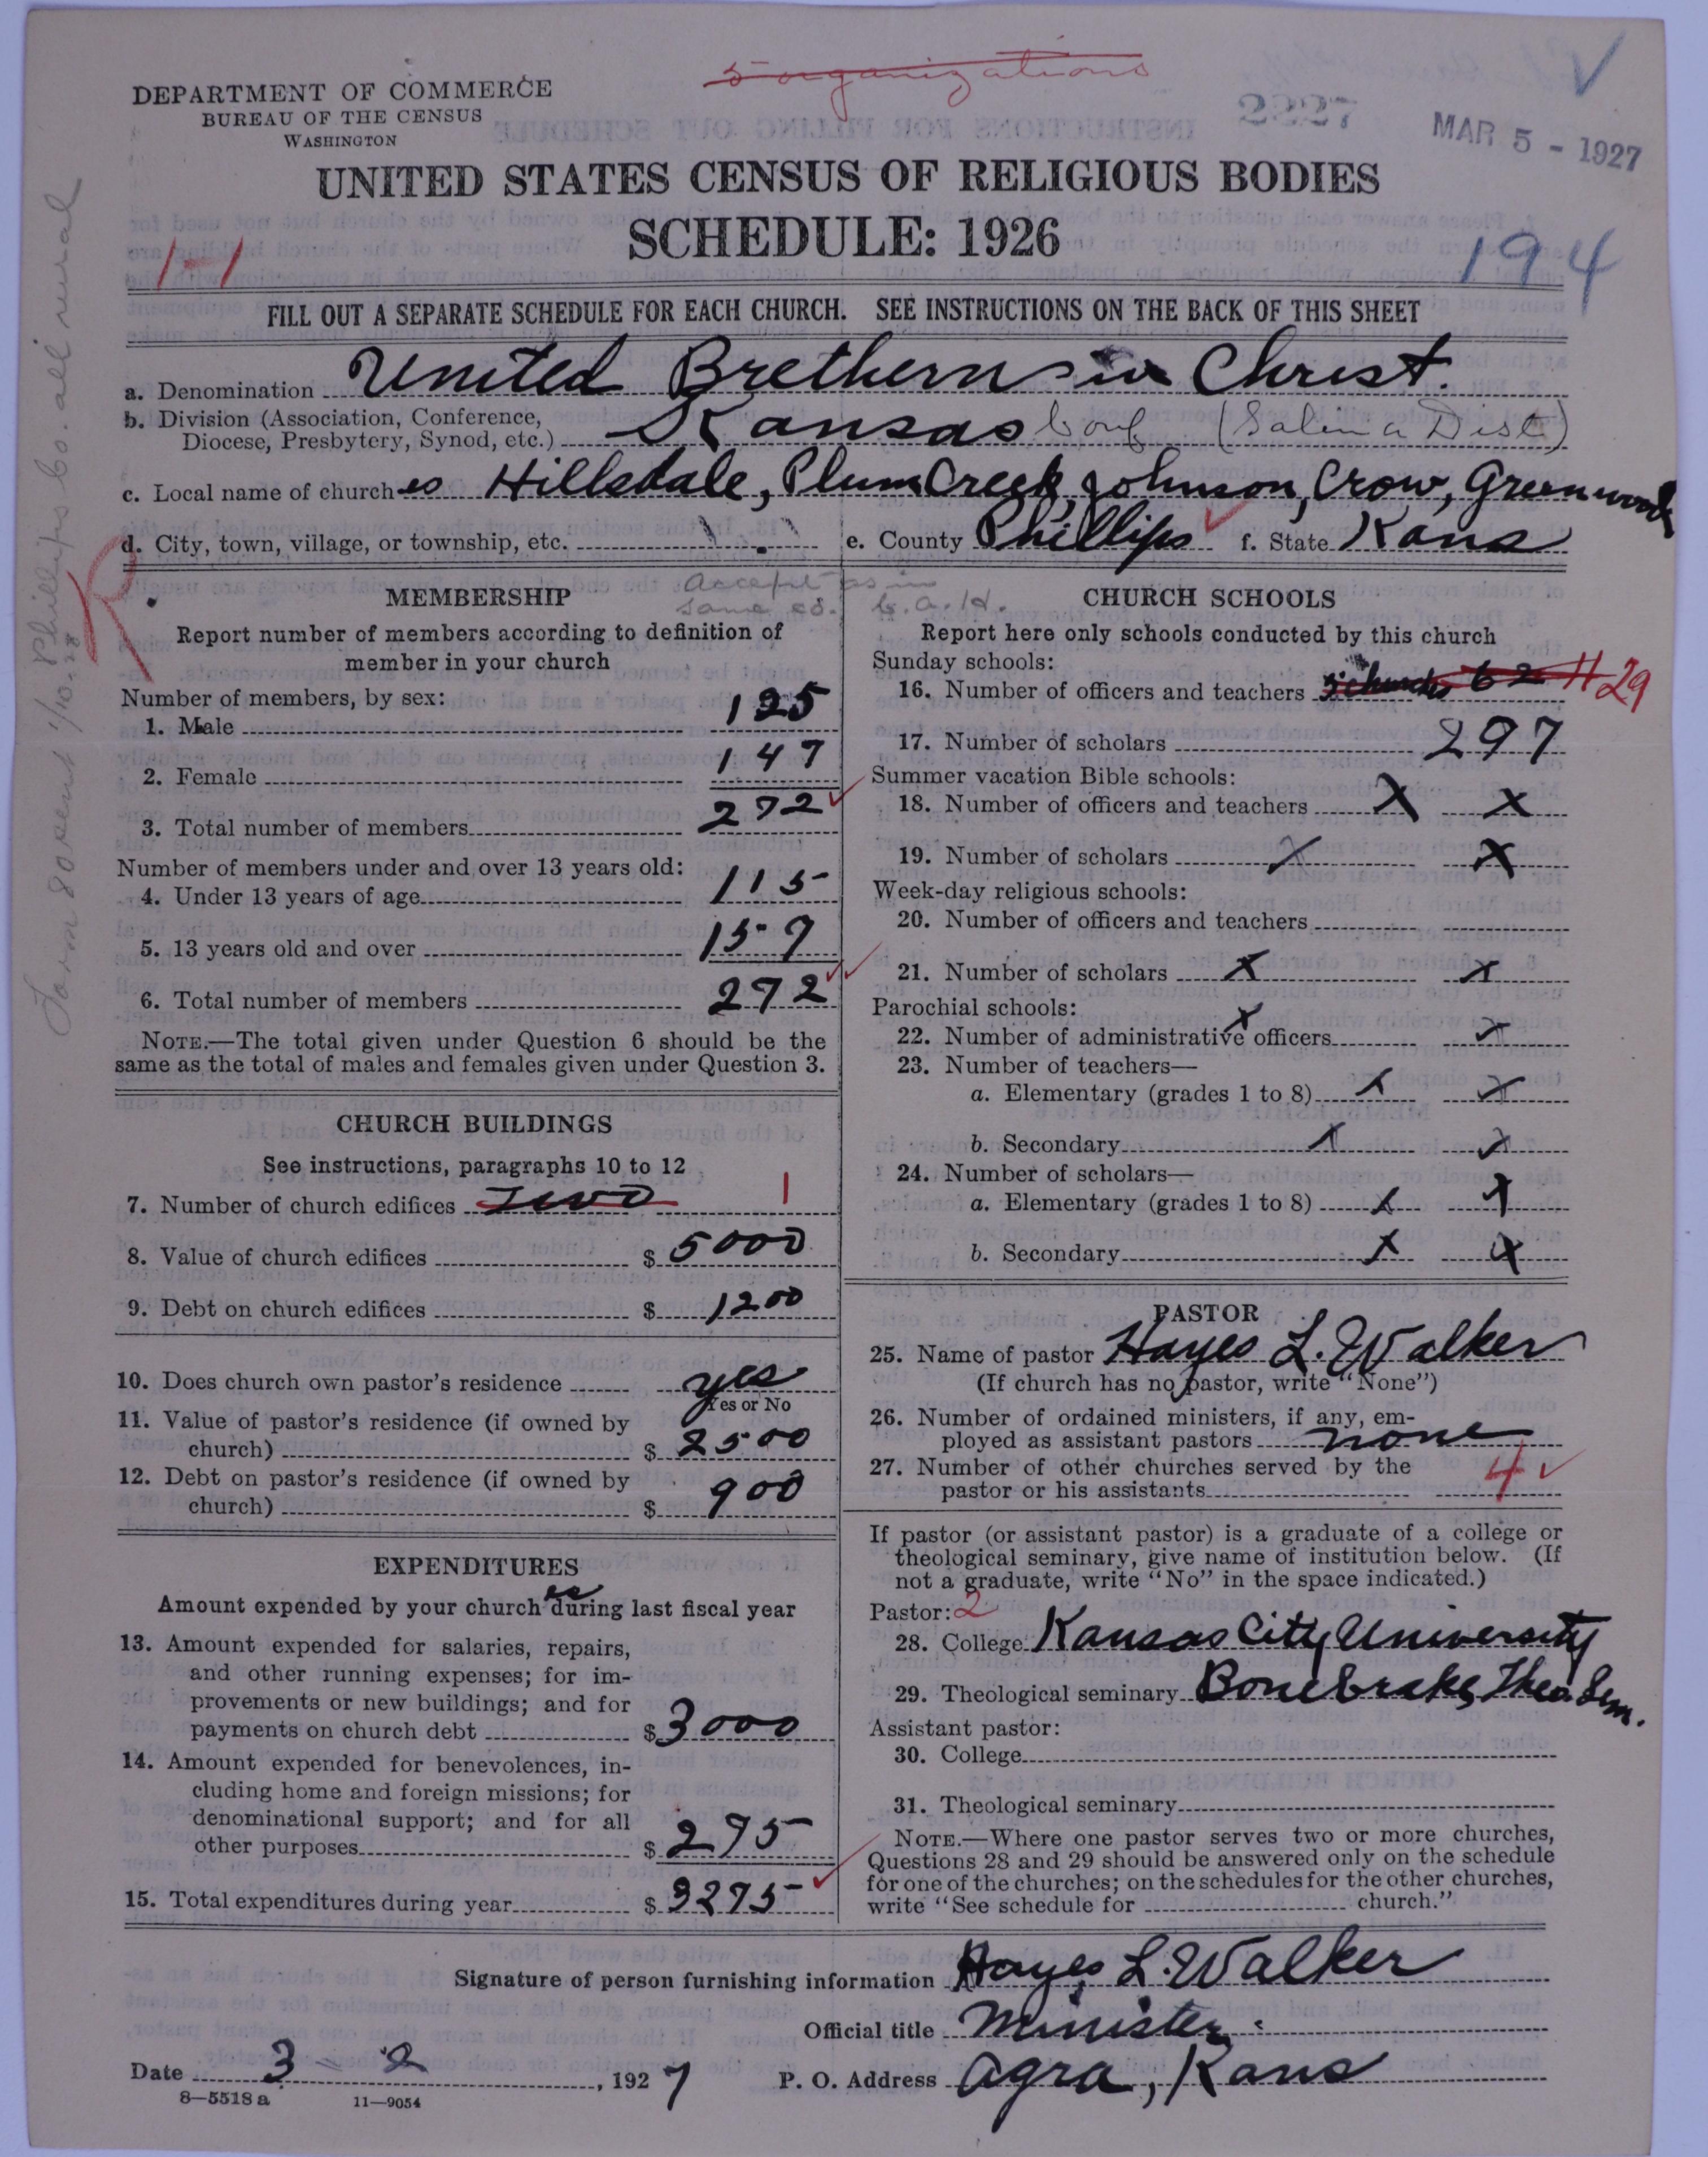 5 organizations
DEPARTMENT OF COMMERCE
BUREAU OF THE CENSUS
WASHINGTON
2227
MAR 5 - 1927
UNITED STATES CENSUS OF RELIGIOUS BODIES
SCHEDULE: 1926
1-1
194
FILL OUT A SEPARATE SCHEDULE FOR EACH CHURCH. SEE INSTRUCTIONS ON THE BACK OF THIS SHEET
a. Denomination United Brethern in Christ.
b. Division (Association, Conference,
Diocese, Presbytery, Synod, etc.) Kansas Conf (Salina Dist)
c. Local name of churches Hillsdale, Plum Creek, Johnson, Crow, Greenwood
d. City, town, village, or township, etc.
e. County Phillips f. State Kans
R
Phillips Co. all rural
Form 80 sent 1/10.28
accept as in
same co. G.A.H.
MEMBERSHIP
Report number of members according to definition of
member in your church
Number of members, by sex:
1. Male 125
2. Female 147
3. Total number of members 272
Number of members under and over 13 years old:
4. Under 13 years of age 115
5. 13 years old and over 157
6. Total number of members 272
NOTE.—The total given under Question 6 should be the
same as the total of males and females given under Question 3.
CHURCH BUILDINGS
See instructions, paragraphs 10 to 12
7. Number of church edifices Two 1
8. Value of church edifices $ 5000
9. Debt on church edifices $ 1200
10. Does church own pastor's residence yes
Yes or No
11. Value of pastor's residence (if owned by
church) $ 2500
12. Debt on pastor's residence (if owned by
church) $ 900
EXPENDITURES
Amount expended by your churches during last fiscal year
13. Amount expended for salaries, repairs,
and other running expenses; for im-
provements or new buildings; and for
payments on church debt $ 3000
14. Amount expended for benevolences, in-
cluding home and foreign missions; for
denominational support; and for all
other purposes $ 275
15. Total expenditures during year $ 3275
CHURCH SCHOOLS
Report here only schools conducted by this church
Sunday schools:
16. Number of officers and teachers 62 29
17. Number of scholars 297
Summer vacation Bible schools:
18. Number of officers and teachers X X
19. Number of scholars X X
Week-day religious schools:
20. Number of officers and teachers
21. Number of scholars X X
Parochial schools:
22. Number of administrative officers X X
23. Number of teachers—
a. Elementary (grades 1 to 8) X X
b. Secondary X X
24. Number of scholars—
a. Elementary (grades 1 to 8) X X
b. Secondary X X
PASTOR
25. Name of pastor Hayes L. Walker
(If church has no pastor, write "None")
26. Number of ordained ministers, if any, em-
ployed as assistant pastors none
27. Number of other churches served by the
pastor or his assistants 4
If pastor (or assistant pastor) is a graduate of a college or
theological seminary, give name of institution below. (If
not a graduate, write "No" in the space indicated.)
Pastor: 2
28. College Kansas City University
29. Theological seminary Bonebrake Theo. Sem.
Assistant pastor:
30. College
31. Theological seminary
NOTE.—Where one pastor serves two or more churches,
Questions 28 and 29 should be answered only on the schedule
for one of the churches; on the schedules for the other churches,
write "See schedule for church."
Signature of person furnishing information Hayes L. Walker
Official title Minister
Date 3 - 2, 1927 P. O. Address Agra, Kans
8—5518 a 11—9054